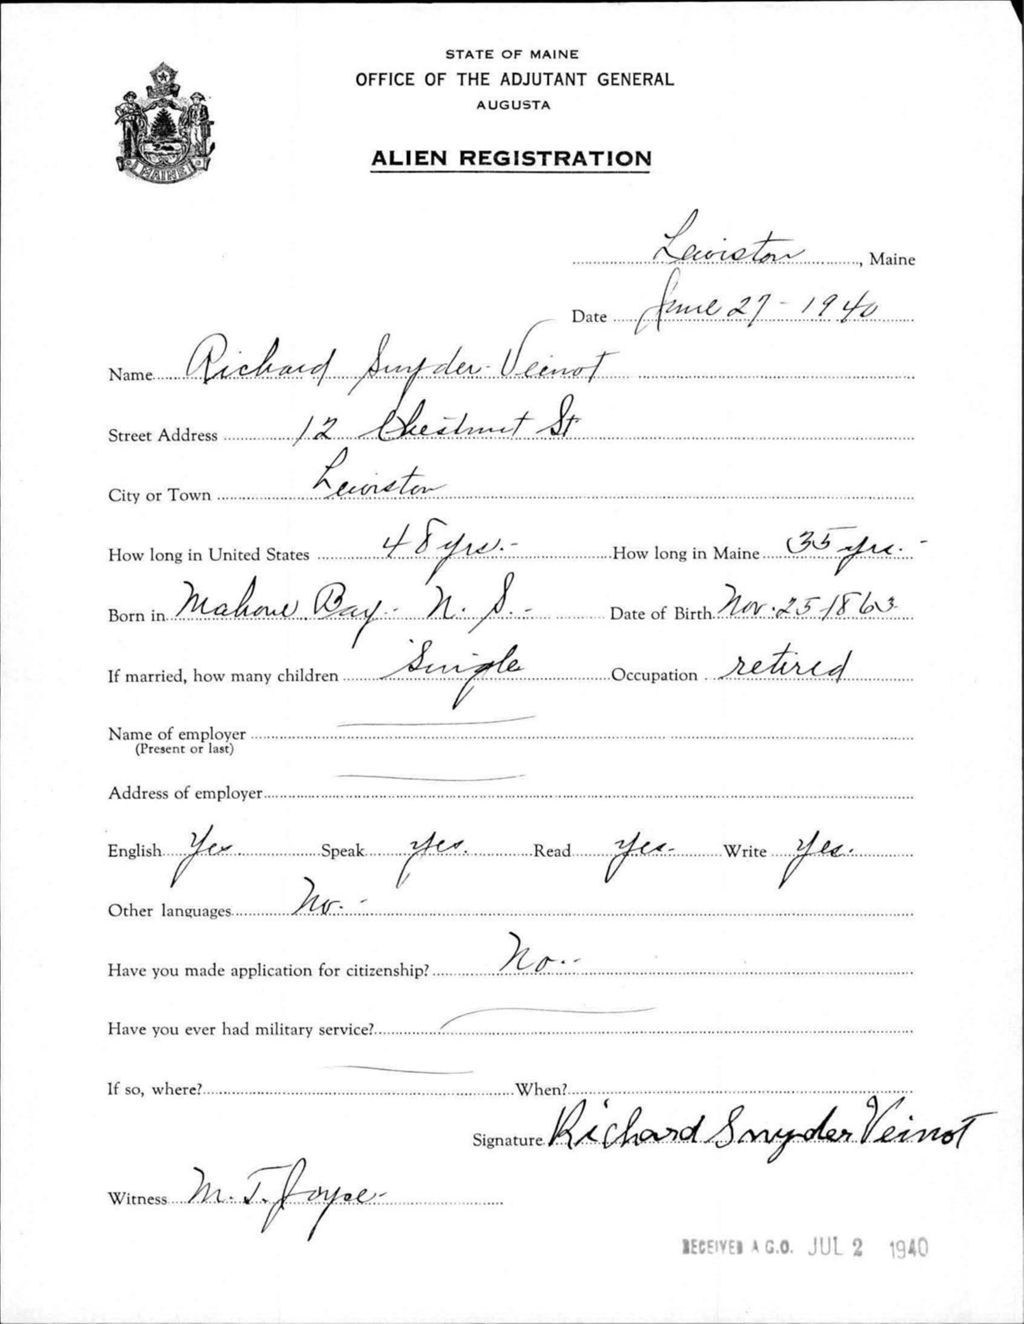 STATE OF MAINE
OFFICE OF THE ADJUTANT GENERAL
AUGUSTA
ALIEN REGISTRATION
MAINE
Lewiston, Maine
Date June 27 - 1940
Name Richard Snyder Veinot
Street Address 12 Chestnut St
City or Town Lewiston
How long in United States 48 yrs. - How long in Maine 35 yrs. -
Born in Mahone Bay - N. S. - Date of Birth Nov. 25 1863
If married, how many children Single Occupation retired
Name of employer
(Present or last)
Address of employer
English Yes Speak yes. Read yes. Write yes.
Other languages No. -
Have you made application for citizenship? No. -
Have you ever had military service?
If so, where? When?
Signature Richard Snyder Veinot
Witness M. T. Joyce
RECEIVED A.G.O. JUL 2 1940